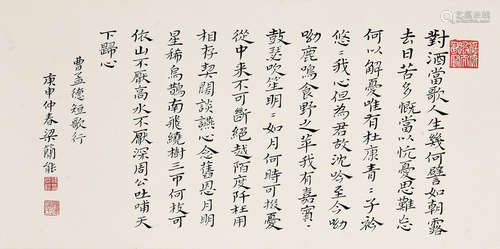 對酒當歌人生幾何譬如朝露
去日苦多慨當以忼憂思難忘
何以解憂唯有杜康青〻子衿
悠〻我心但為君故沈吟至今呦
呦鹿鳴食野之苹我有嘉賓〻
鼓瑟吹笙明〻如月何時可掇憂
從中來不可斷絕越陌度阡枉用
相存契闊談讌心念舊恩月明
星稀烏鵲南飛繞樹三帀何枝可
依山不厭高水不厭深周公吐哺天
下歸心
曹孟德短歌行
庚申仲春梁簡能